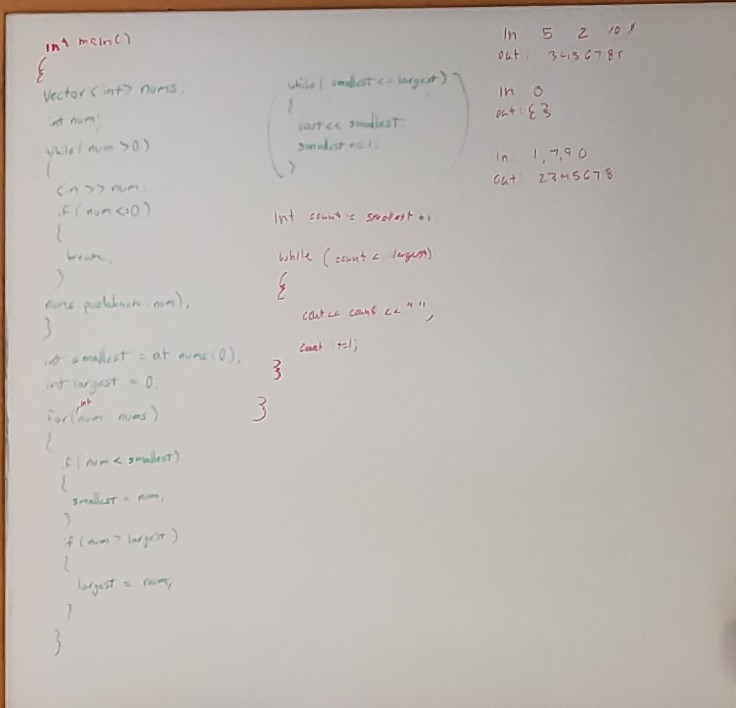 int main()
{
Vector<int> nums;
int num;
while(num >0)
{
cin>> num;
if(num<=0)
{
break;
}
nums.pushback(num);
}
int smallest = at nums(0);
int largest = 0;
for(int num nums)
{
if(num < smallest)
{
smallest = num;
}
if(num > largest)
{
largest = num;
}
}
while( smallest <= largest)
{
cout<< smallest;
smallest += 1;
}
int count = smallest +1
while (count < largest)
{
cout<< count <<" ";
count +=1;
}
}
In: 5 2 10
out: 345678
In: 0
out: { }
In: 1,7,9 0
out: 2345678